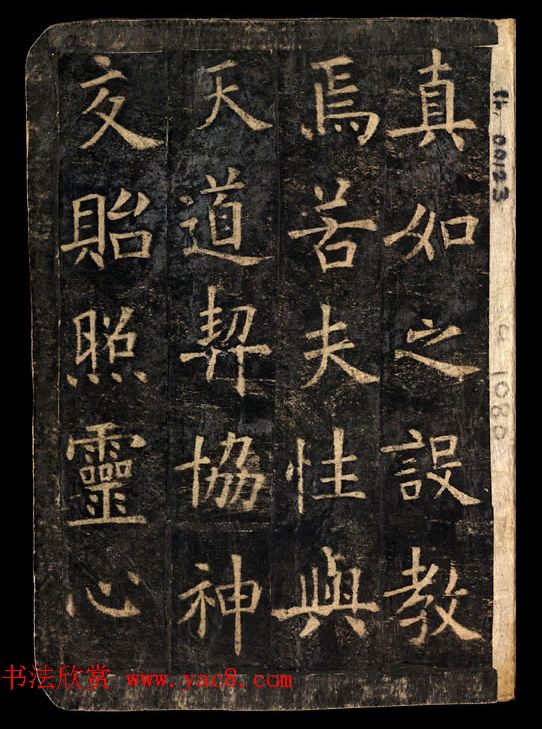 真如之設教
焉若夫性與
天道契協神
交貽照靈心
00123
1080
书法欣赏 www.yac8.com